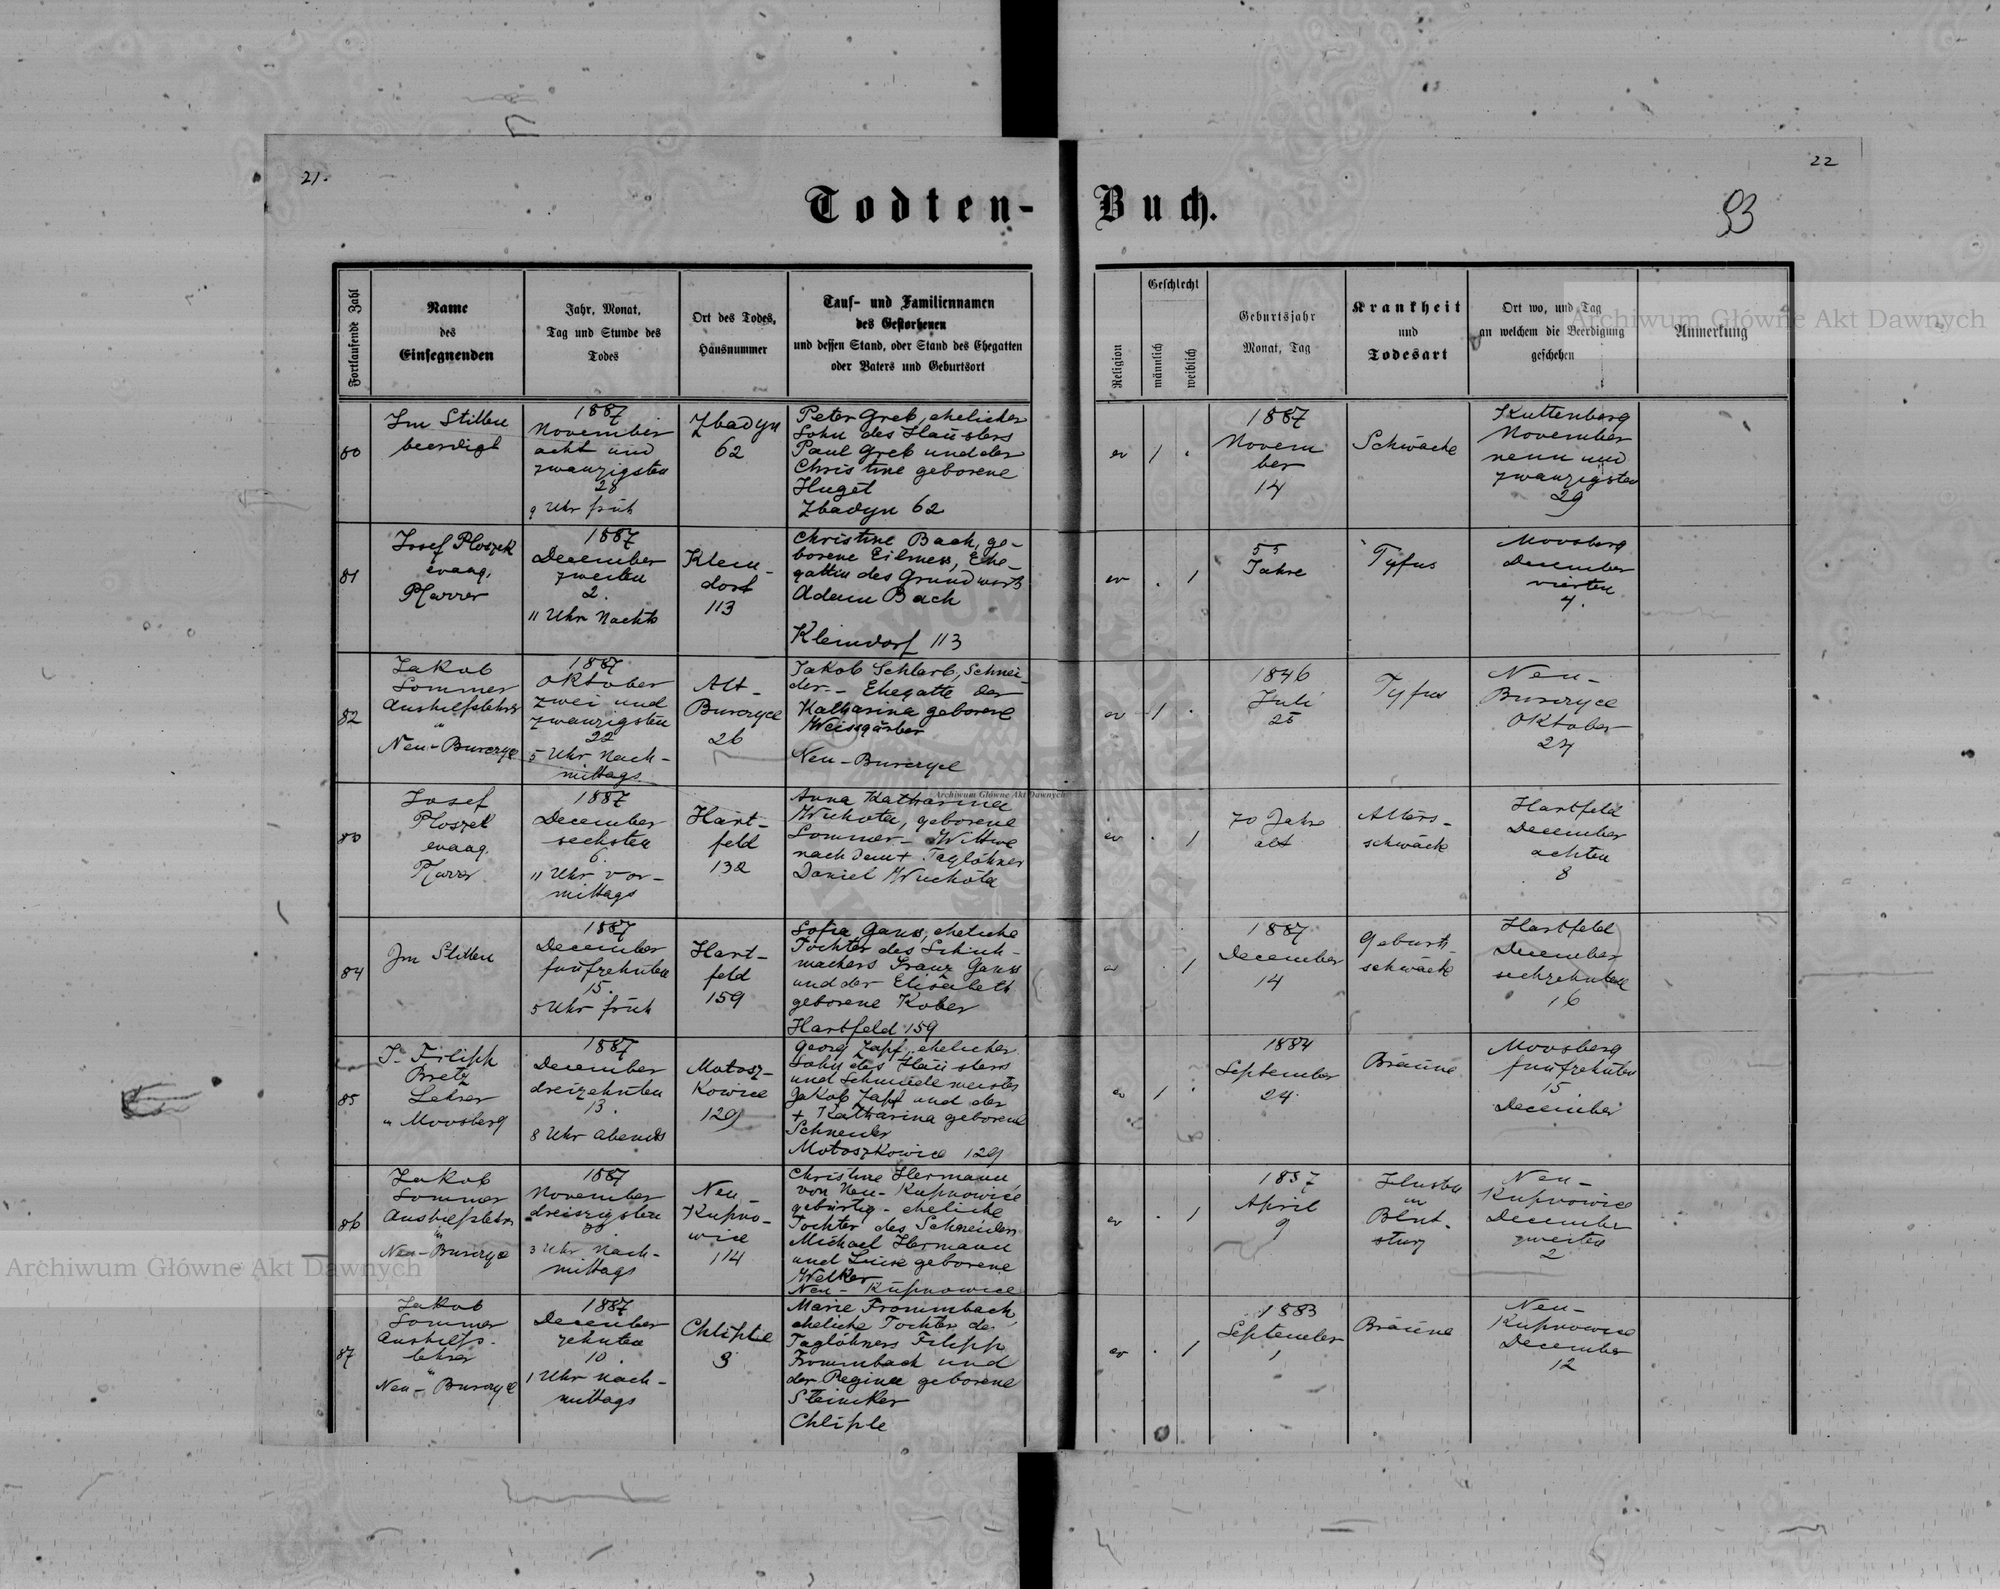 21.
22
Todten-Buch.
93
Fortlaufende Zahl
Name
des
Einsegnenden
Jahr, Monat,
Tag und Stunde des
Todes
Ort des Todes,
Hausnummer
Tauf- und Familiennamen
des Gestorbenen
und dessen Stand, oder Stand des Ehegatten
oder Vaters und Geburtsort
Religion
Geschlecht
männlich
weiblich
Geburtsjahr
Monat, Tag
Krankheit
und
Todesart
Ort wo, und Tag
an welchem die Beerdigung
geschehen
Anmerkung
80
Im Stillen
beerdigt
1887
November
acht und
zwanzigsten
28
9 Uhr früh
Zbadyn
62
Peter Greb, ehelicher
Sohn des Häuslers
Paul Greb und der
Christine geborene
Huget
Zbadyn 62
ev
1
.
1887
Novem
ber
14
Schwäche
Kuttenberg
November
neun und
zwanzigsten
29
81
Josef Ploszek
evang.
Pfarrer
1887
December
zweiten
2.
11 Uhr Nachts
Klein-
dorf
113
Christine Bach, ge-
borene Eilmess, Ehe-
gattin des Grundwirts
Adam Bach
Kleindorf 113
ev
.
1
55
Jahre
Tyfus
Moosberg
December
vierten
4.
82
Jakob
Sommer
Aushilfslehrer
"
Neu-Burczyce
1887
Oktober
zwei und
zwanzigsten
22
5 Uhr Nach-
mittags
Alt-
Burczyce
26
Jakob Schlarb, Schnei-
der - Ehegatte der
Katharina geborene
Weissgärber
Neu-Burczyce
ev
1
.
1846
Juli
25
Tyfus
Neu-
Burczyce
Oktober
24
83
Josef
Ploszek
evang.
Pfarrer
1887
December
sechsten
6.
11 Uhr vor-
mittags
Hart-
feld
132
Anna Katharina
Wuchota, geborene
Sommer - Wittwe
nach dem + Taglöhner
Daniel Wuchota
ev
.
1
70 Jahre
alt
Alters-
schwäche
Hartfeld
December
achten
8
84
Im Stillen
1887
December
fünfzehnten
15.
5 Uhr früh
Hart-
feld
159
Sofia Gauss, eheliche
Tochter des Schuh-
machers Franz Gauss
und der Elisabeth
geborene Kober
Hartfeld 159
ev
.
1
1887
December
14
Geburts-
schwäche
Hartfeld
December
sechzehnten
16
85
J. Filipp
Bretz
Lehrer
" Moosberg
1887
December
dreizehnten
13.
8 Uhr Abends
Motosz-
kowice
129
Georg Zapf, ehelicher
Sohn des Häuslers
und Schmiedemeisters
Jakob Zapf und der
+ Katharina geborene
Schneider
Motoszkowice 129
ev
1
.
1884
September
24.
Bräune
Moosberg
fünfzehnten
15
December
86
Jakob
Sommer
Aushilfslehrer
"
Neu-Burczyce
1887
November
dreiszigsten
30
3 Uhr Nach-
mittags
Neu-
Kupno-
wice
114
Christine Hermann
von Neu-Kupnowice
gebürtig - eheliche
Tochter des Schneiders
Michael Hermann
und Luise geborene
Welker
Neu-Kupnowice
ev
.
1
1857
April
9
Husten
u
Blut-
sturz
Neu-
Kupnowice
December
zweiten
2
87
Jakob
Sommer
Aushilfs-
lehrer
"
Neu-Burczyce
1887
December
zehnten
10.
1 Uhr nach-
mittags
Chliple
3
Marie Frommbach,
eheliche Tochter des
Taglöhners Filipp
Frommbach und
der Regina geborene
Steiniker
Chliple
ev
.
1
1883
September
1
Bräune
Neu-
Kupnowice
December
12
Archiwum Główne Akt Dawnych
Archiwum Główne Akt Dawnych
Archiwum Główne Akt Dawnych